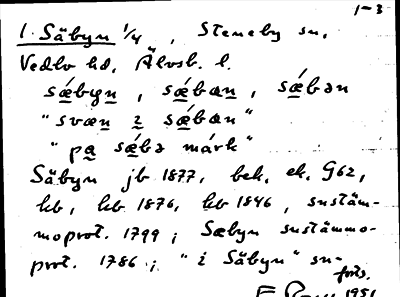 1-3
1. Säbyn 1/4, Steneby sn,
Vedbo hd, Älvsb. l.
sǽbyn, sǽban, sǽbən
"svæn i sǽban"
"pa sǽbə márk"
Säbyn jb 1877, bek. ek. G62,
kb, kb 1876, kb 1846, sustäm-
moprot. 1799; Sæbyn sustämmo-
prot. 1786; "i Säbyn" sn-
forts.
1951